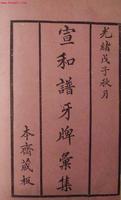 光緒戊子秋月
宣和譜牙牌彙集
本齋藏板